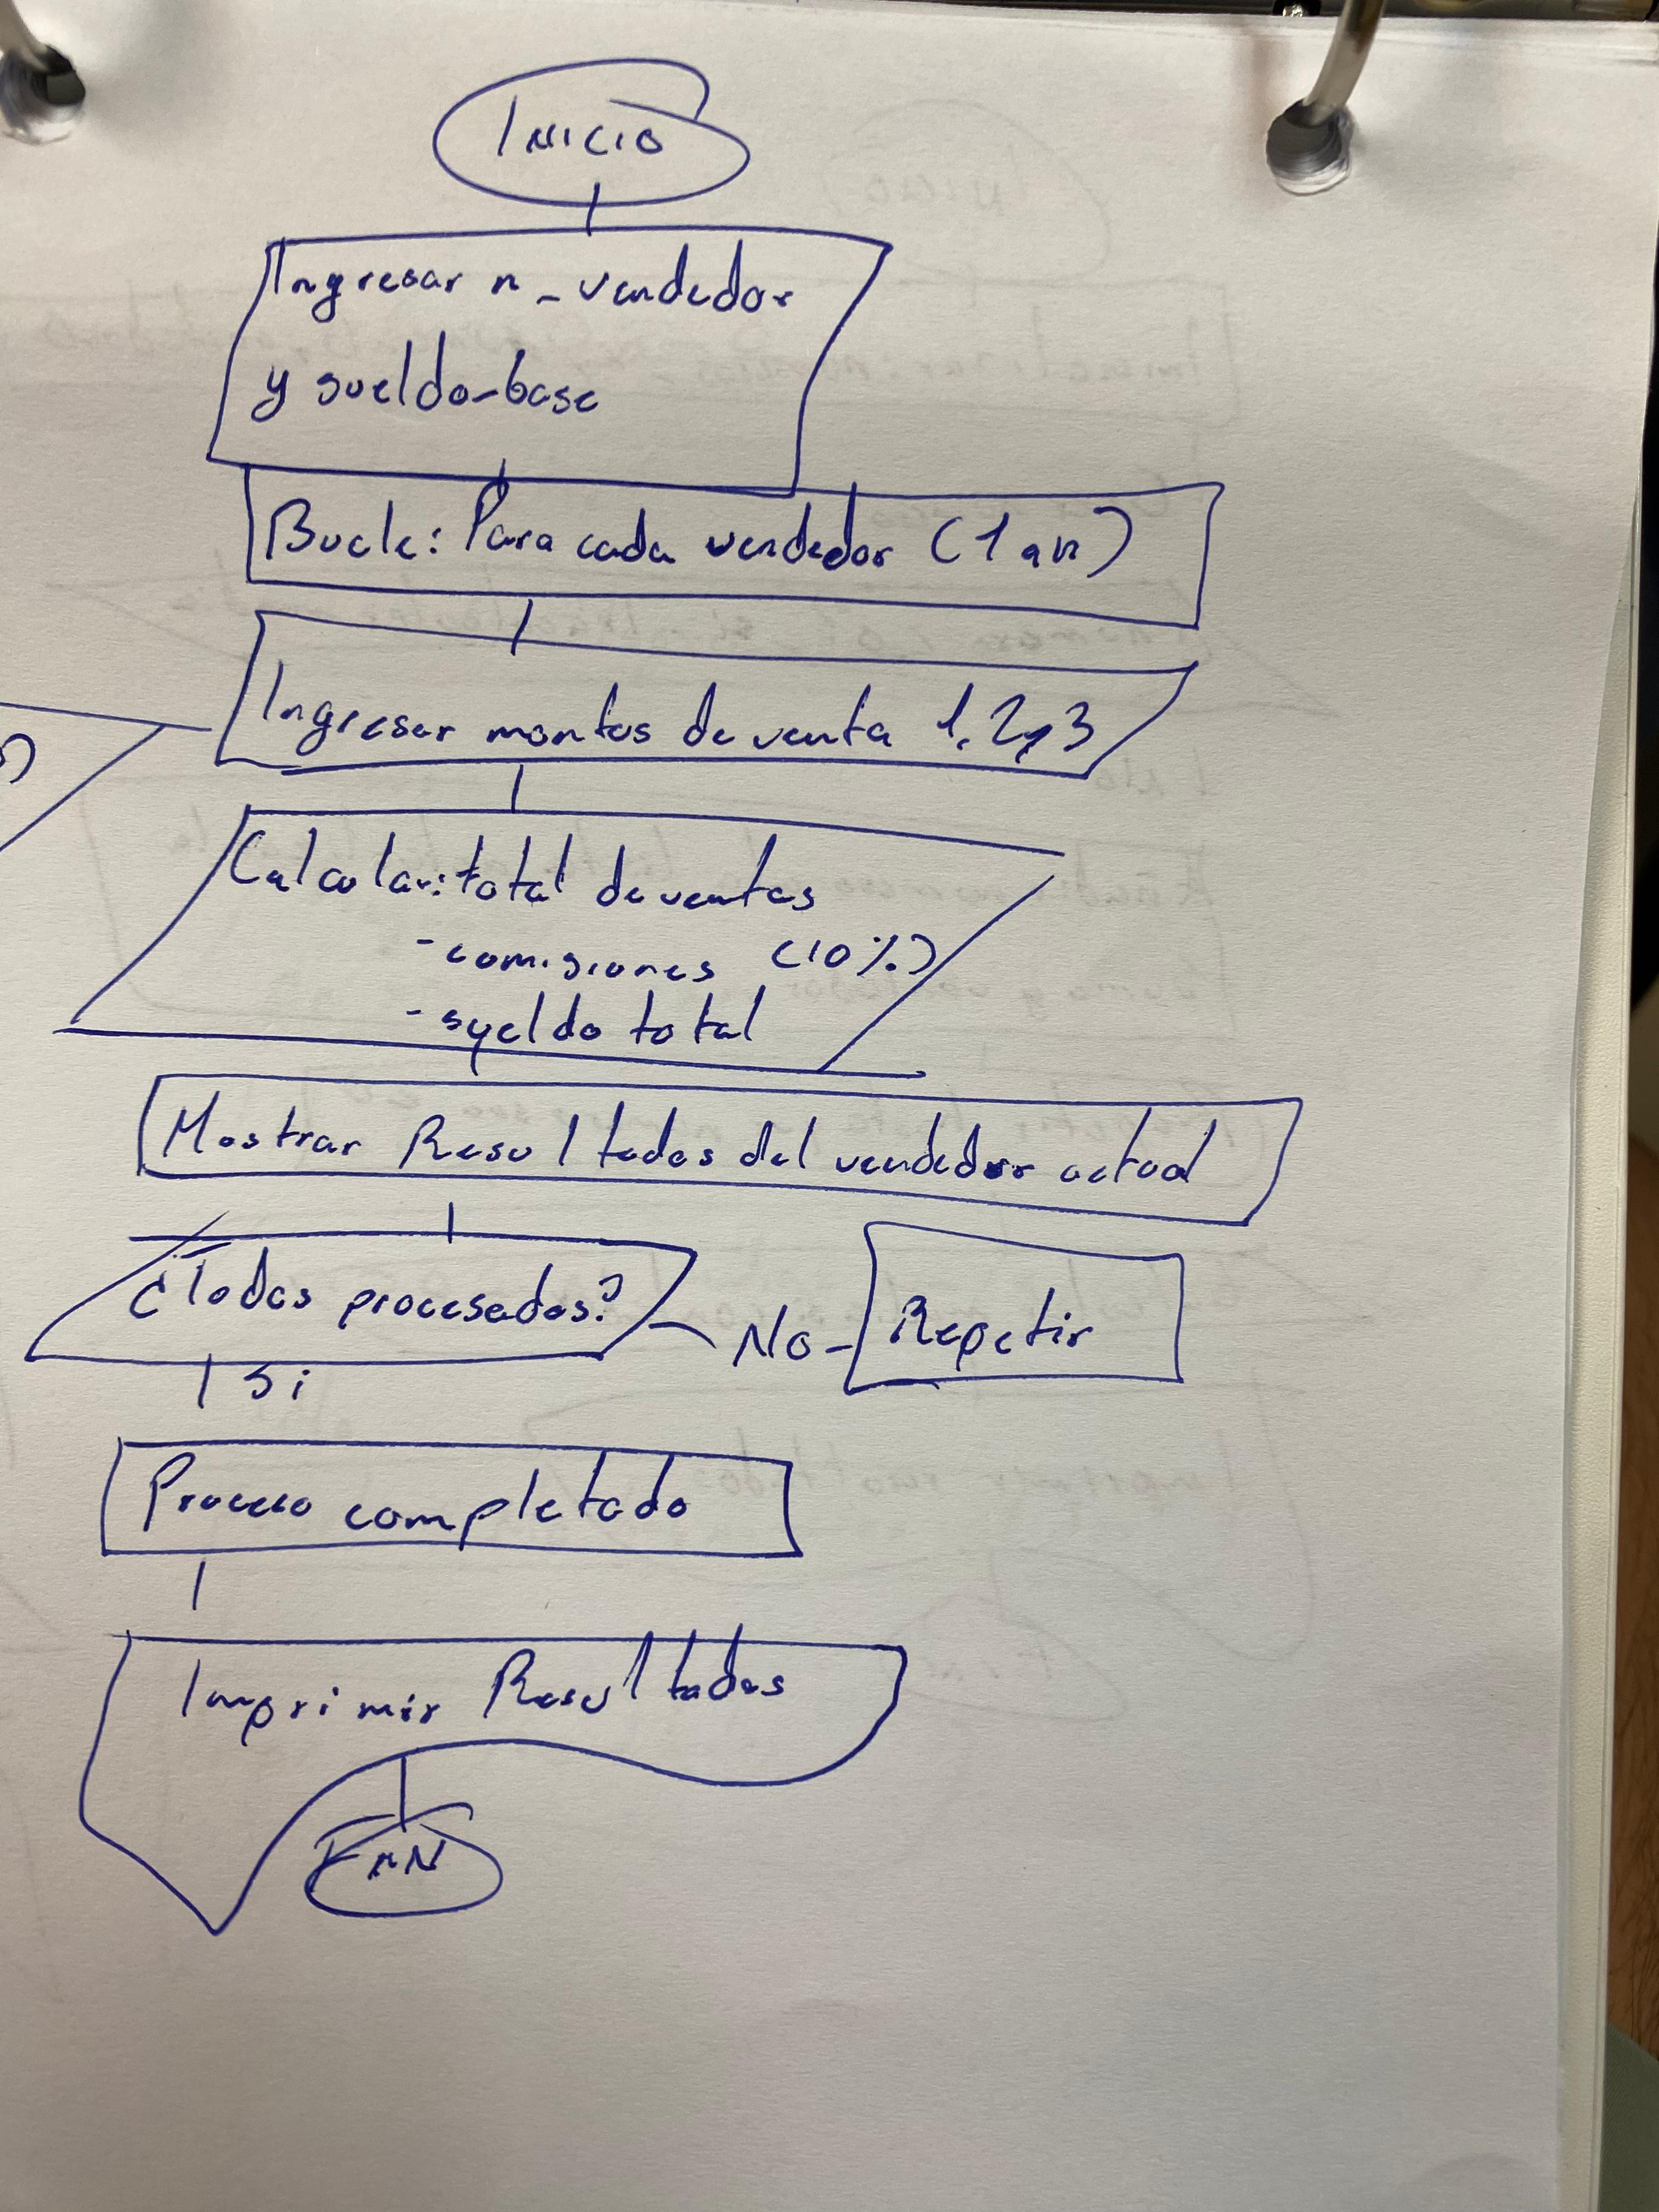 INICIO
Ingresar n_vendedor
y sueldo-base
Bucle: Para cada vendedor (1 a n)
Ingresar montos de venta 1, 2 y 3
Calcular: total de ventas
- comisiones (10%)
- sueldo total
Mostrar Resultados del vendedor actual
¿Todos procesados?
No
Repetir
Si
Proceso completado
Imprimir Resultados
FIN